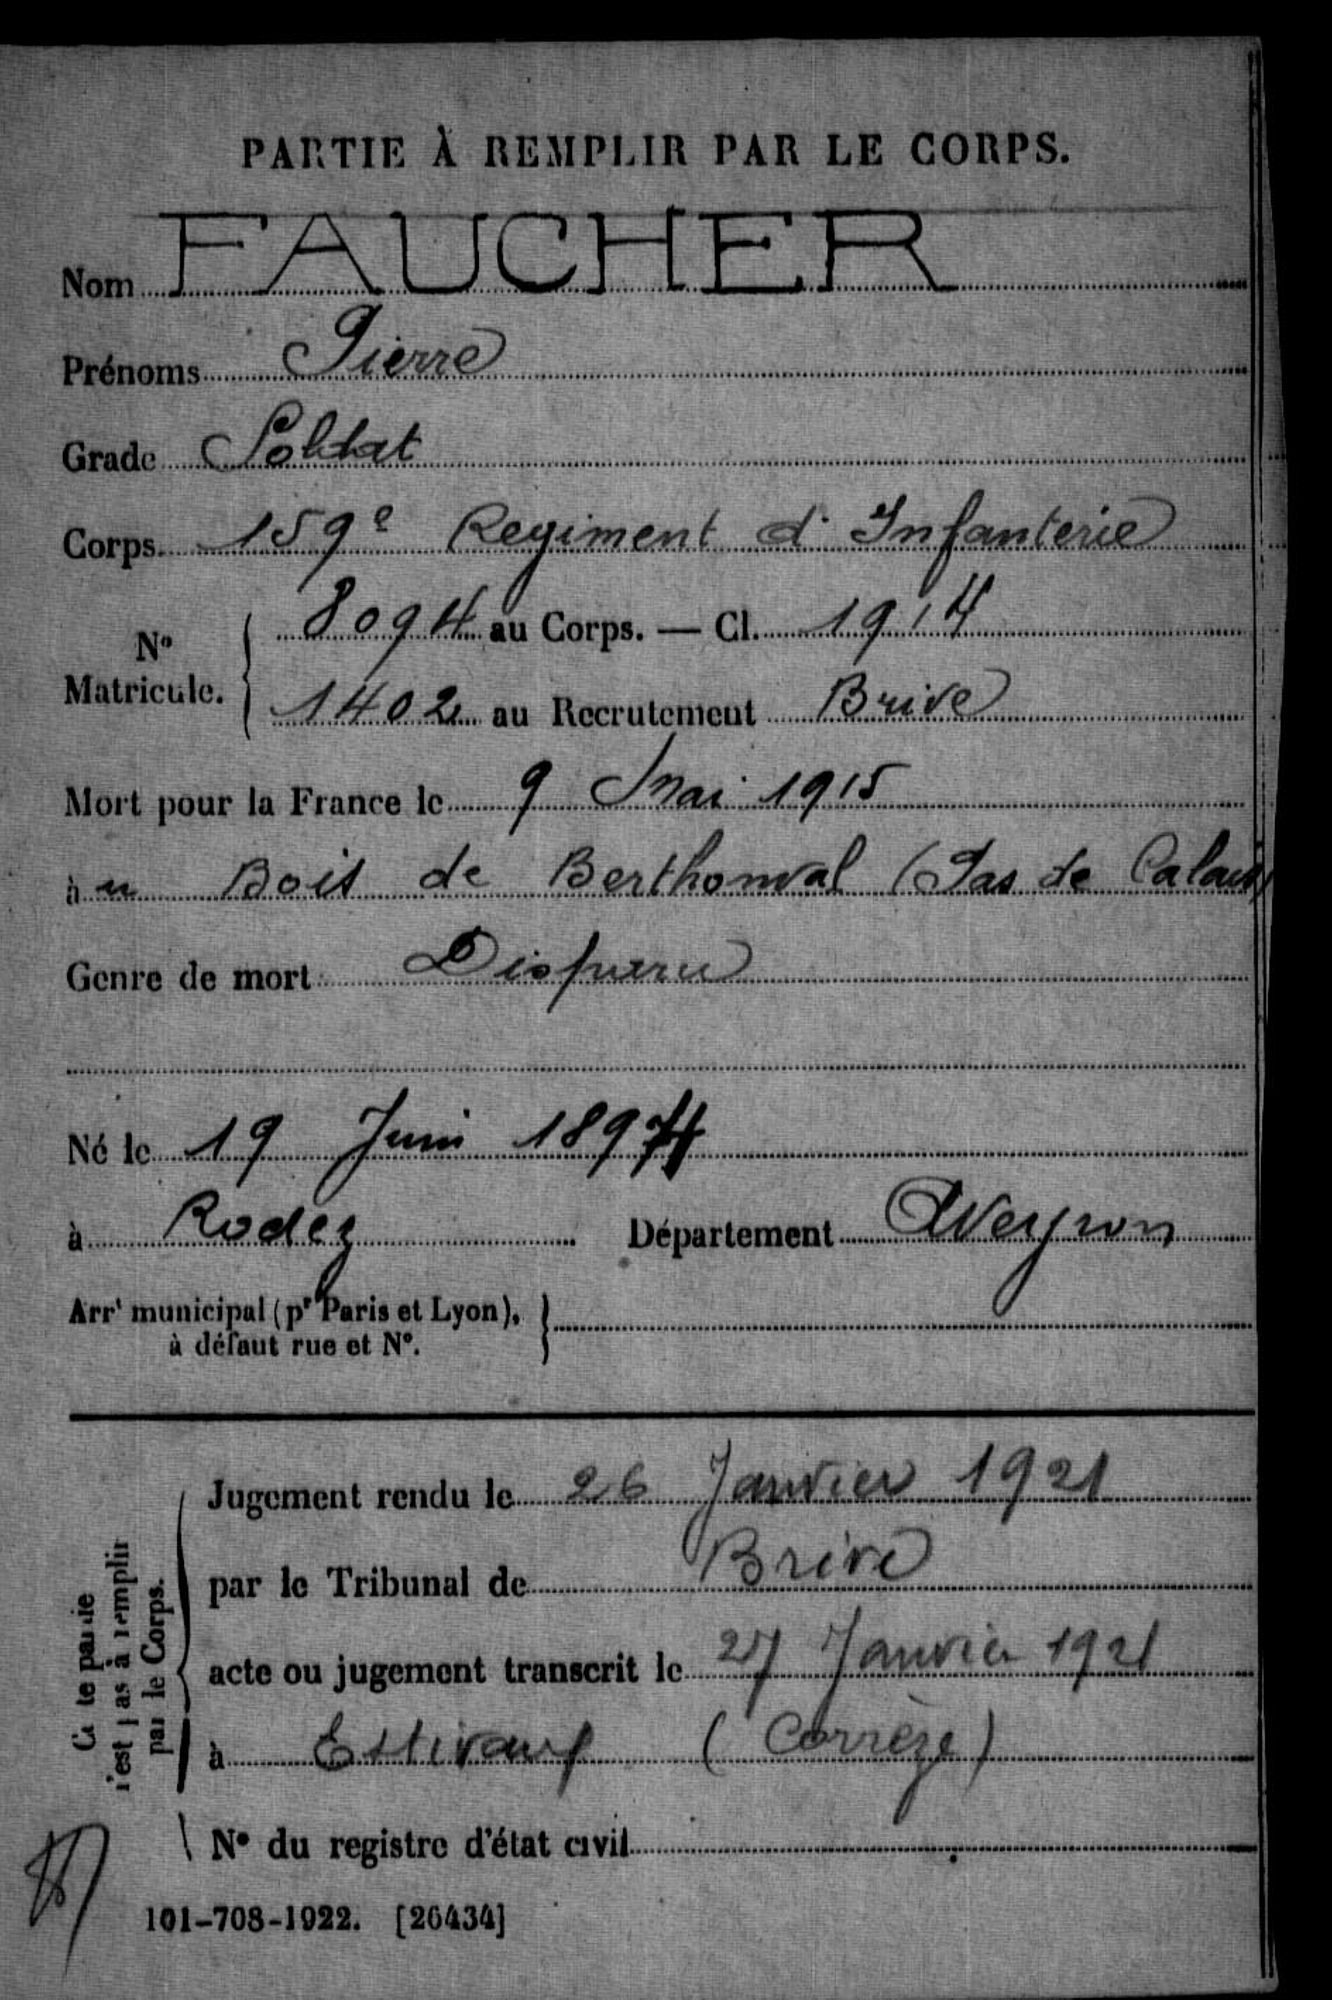 PARTIE À REMPLIR PAR LE CORPS.
Nom FAUCHER
Prénoms Pierre
Grade Soldat
Corps 159e Regiment d'Infanterie
No Matricule. 8094 au Corps. — Cl. 1914
1402 au Recrutement Brive
Mort pour la France le 9 Mai 1915
à u Bois de Berthonval (Pas de Calais)
Genre de mort Disparu
Né le 19 Juin 1894
à Rodez Département Aveyron
Arrt municipal (pr Paris et Lyon), à défaut rue et No.
Cette partie n'est pas à remplir par le Corps.
Jugement rendu le 26 Janvier 1921
par le Tribunal de Brive
acte ou jugement transcrit le 27 Janvier 1921
à Estivaux (Corrèze)
No du registre d'état civil
101-708-1922. [26434]